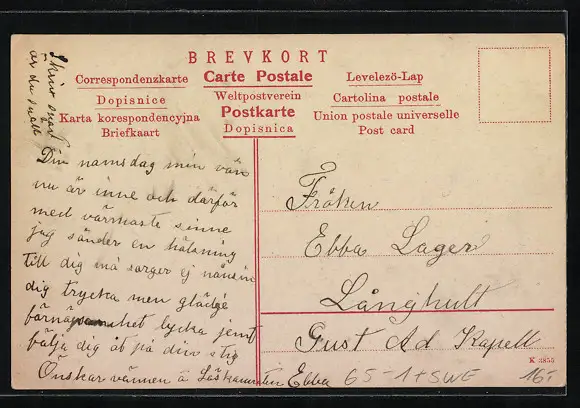 BREVKORT
Correspondenzkarte Carte Postale Levelezö-Lap
Dopisnice Weltpostverein Cartolina postale
Karta korespondencyjna Postkarte Union postale universelle
Briefkaart Dopisnica Post card
Skriv snart
är du snäll
Din namsdag min vän
nu är inne och därför
med värmaste sinne
jag sänder en hälsning
till dig må sorger ej nånsin
dig trycka men glädje
het lycka jemt
följa dig åt på din stig
Önskar vännen Ebba
Fröken
Ebba Lager
Långhult
Gust Ad Kapell
K 3855
65-1+SWE
16,-